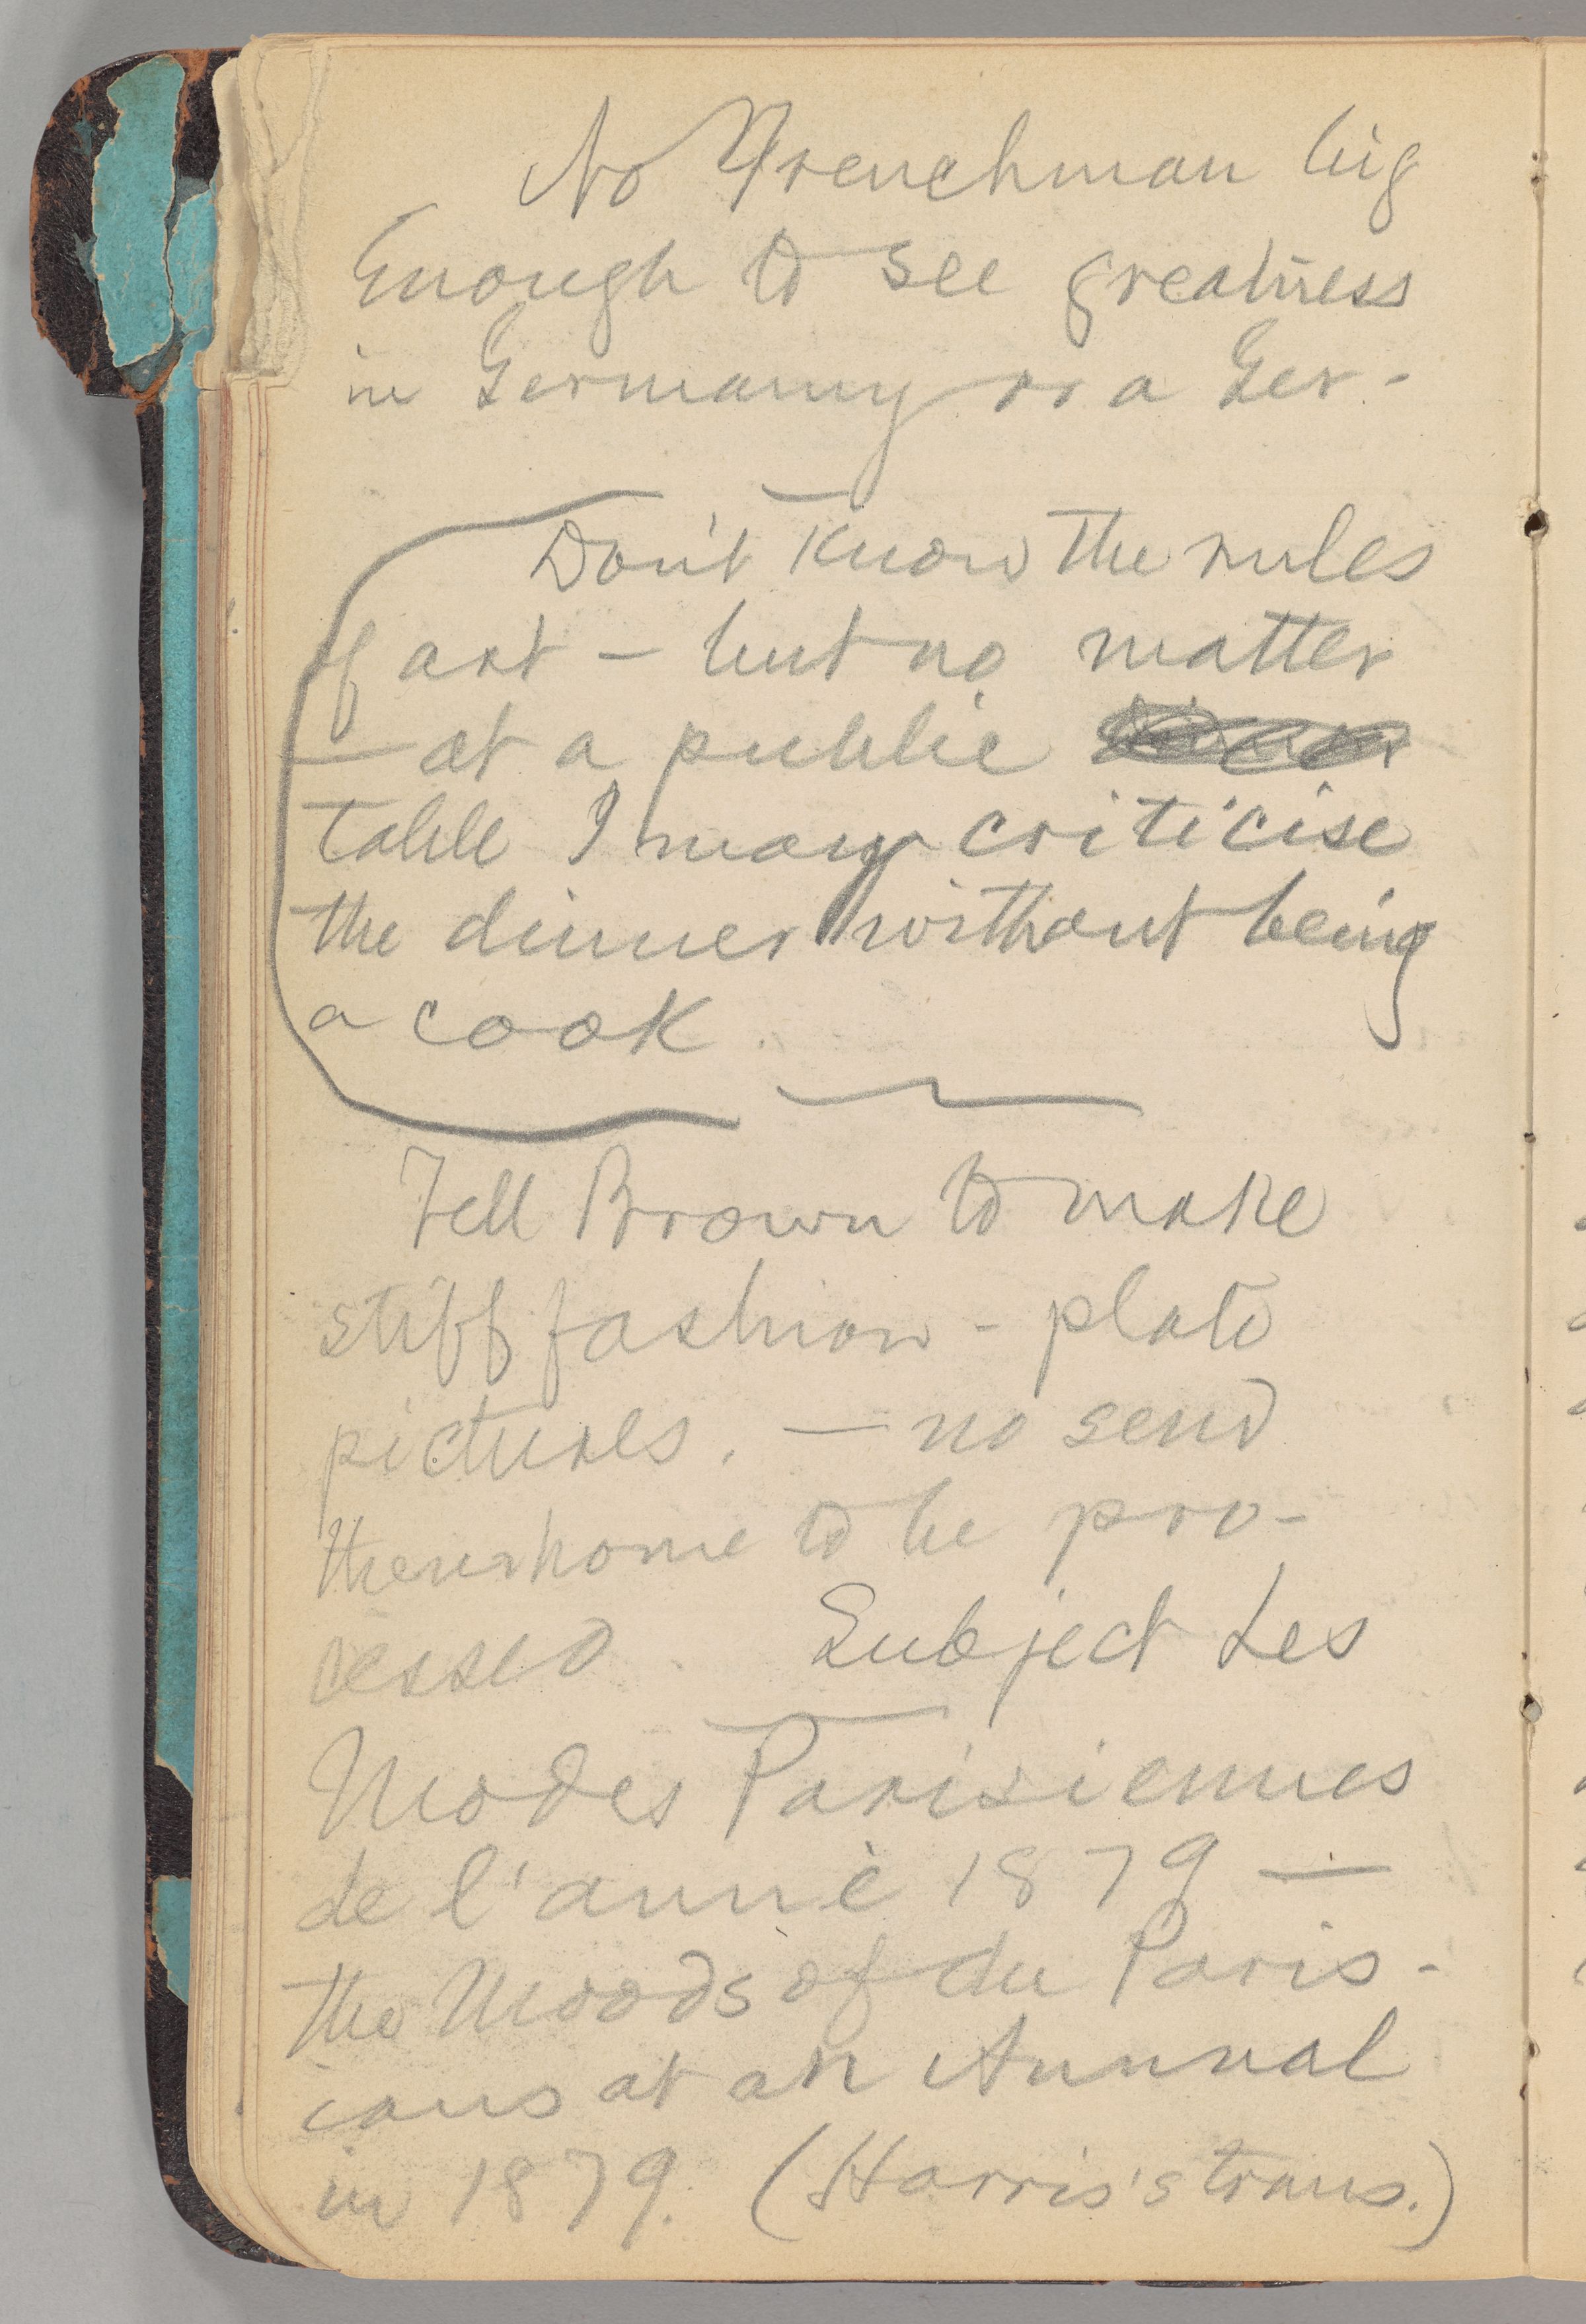 No Frenchman big
Enough to see greatness
in Germany or a Ger-
Don't know the rules
of art — but no matter
— at a public
table I may criticise
the dinner without being
a cook.
Tell Brown to make
stiff fashion-plate
pictures. — no send
them home to be pro-
cessed. Subject Les
Modes Parisiennes
de l'anné 1879 —
the Moods of du Paris-
ians at an Annual
in 1879. (Harris's trans.)